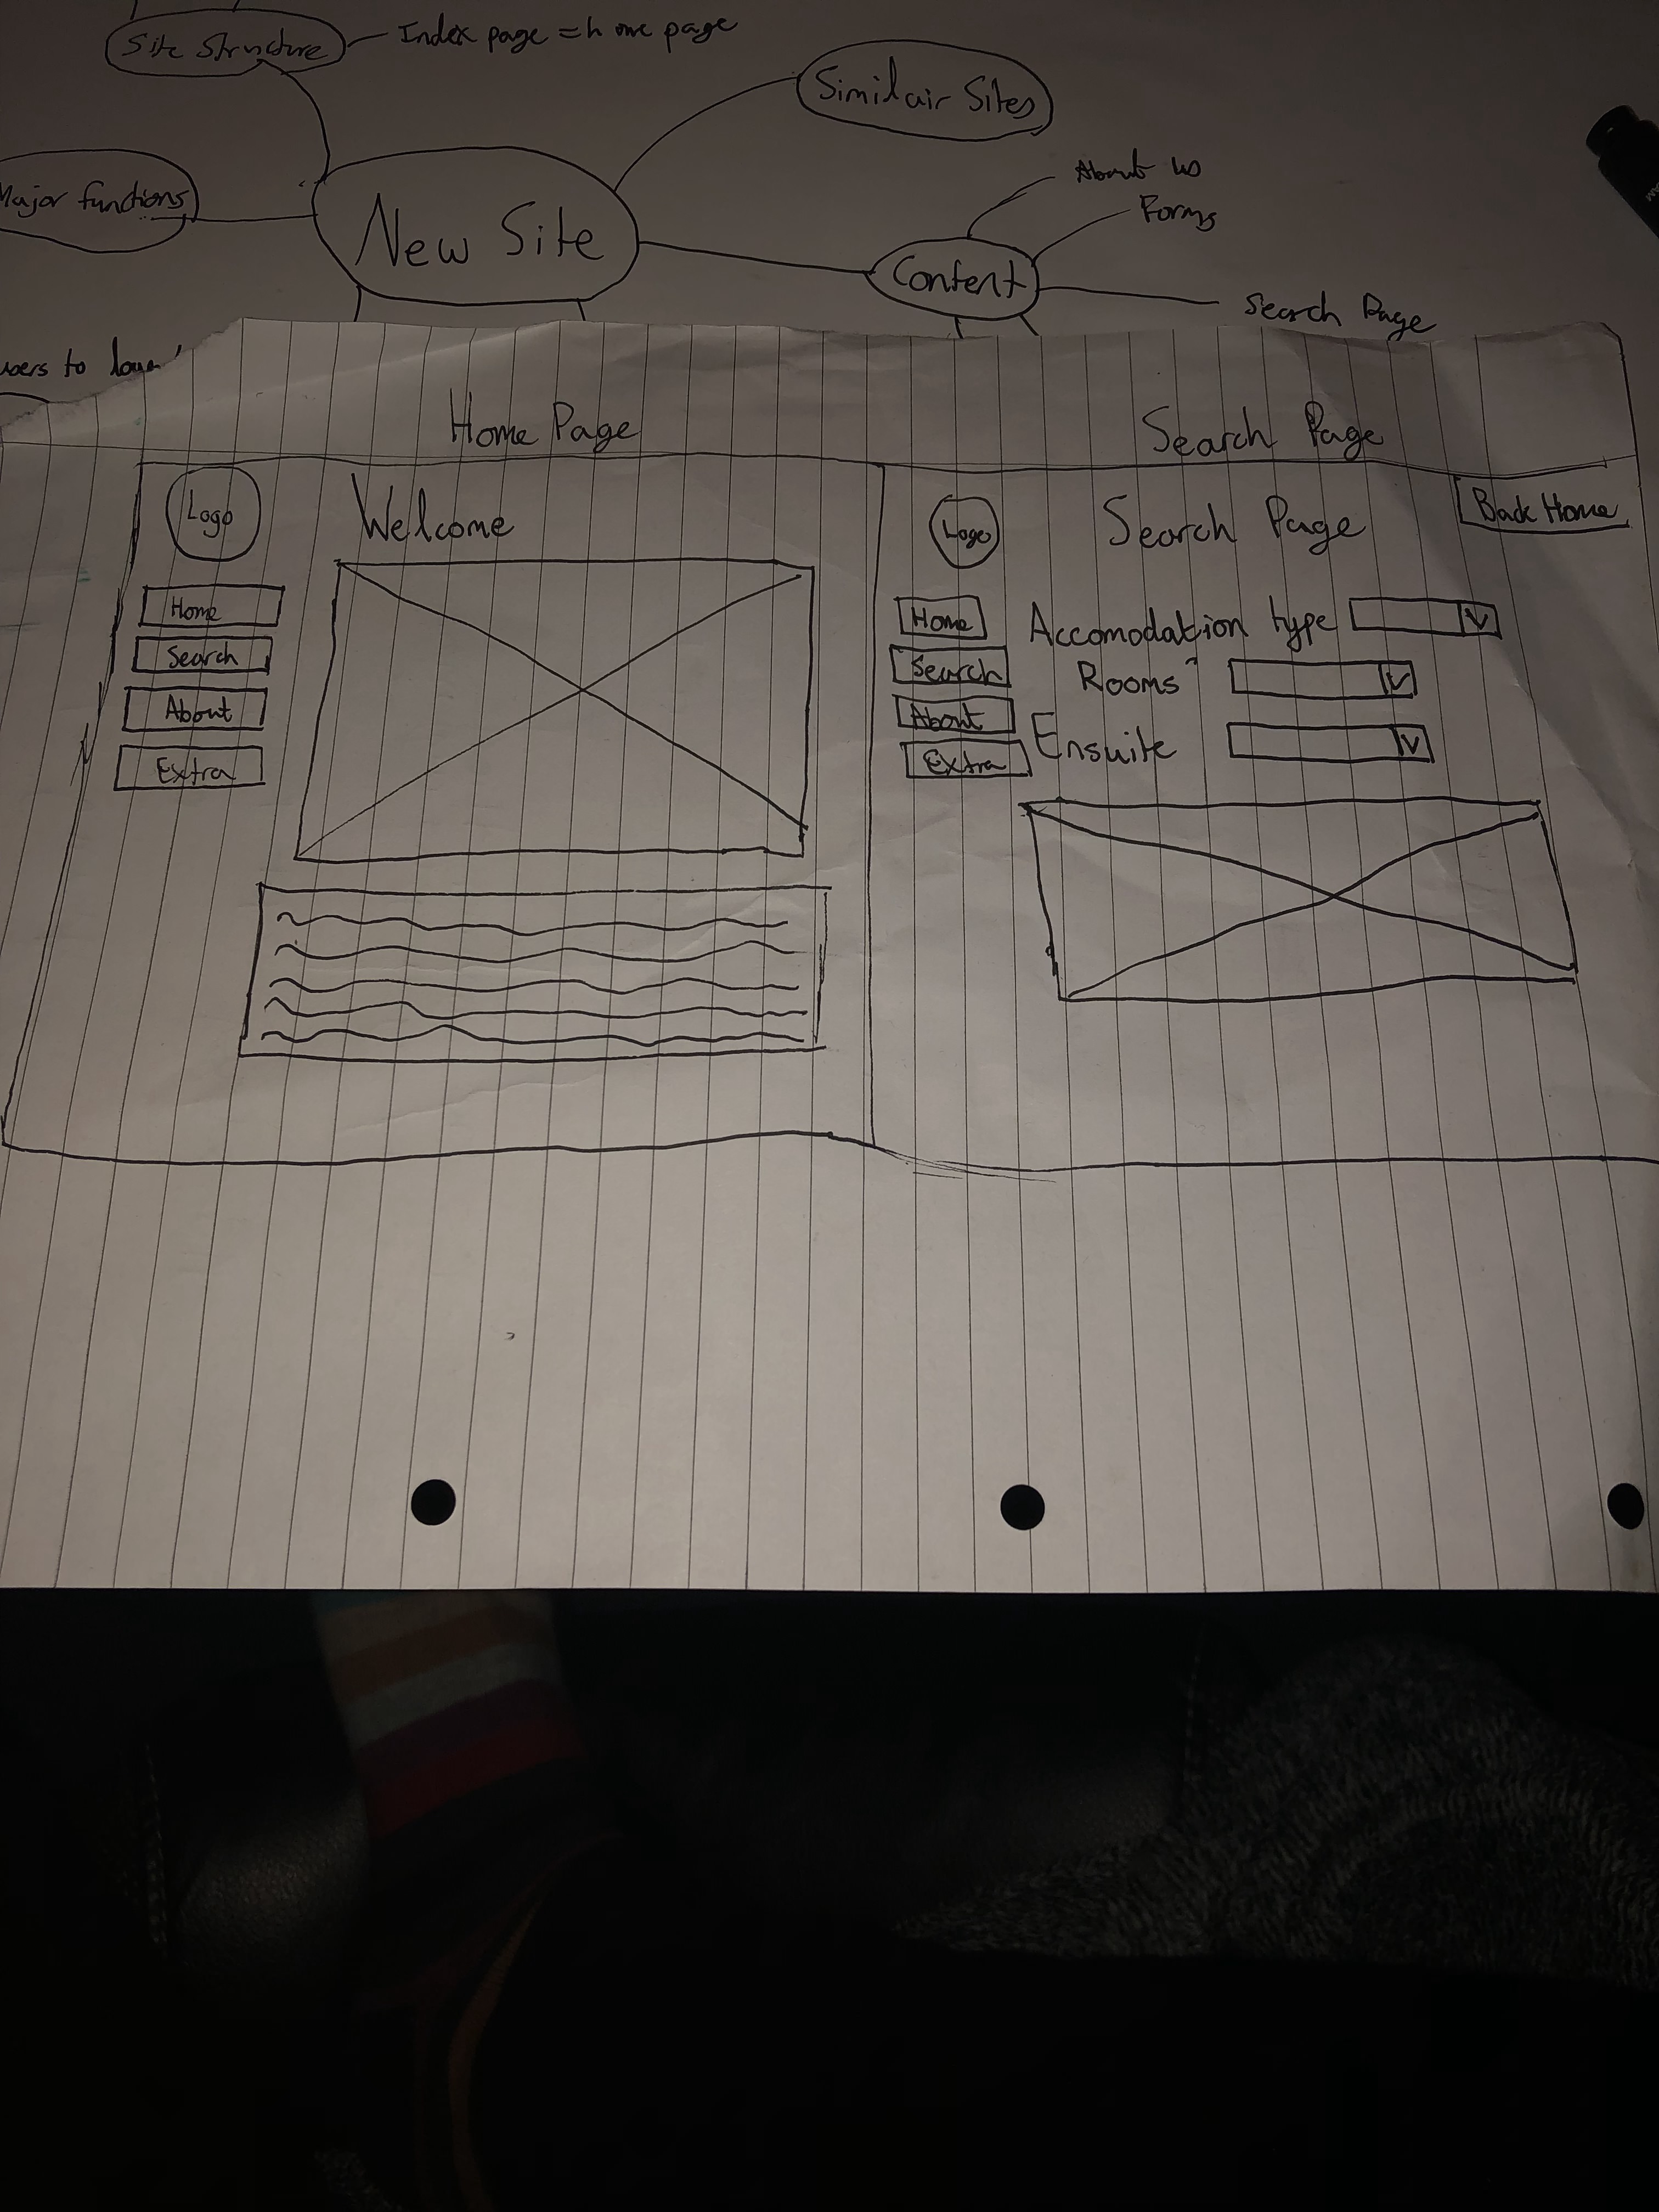 Site Structure
Index page = home page
Similair Sites
Major functions
New Site
About us
Forms
Content
Search Page
to
Home Page
Search Page
Logo
Welcome
Home
Search
About
Extra
Logo
Search Page
Back Home
Home
Search
About
Extra
Accomodation type
Rooms
Ensuite